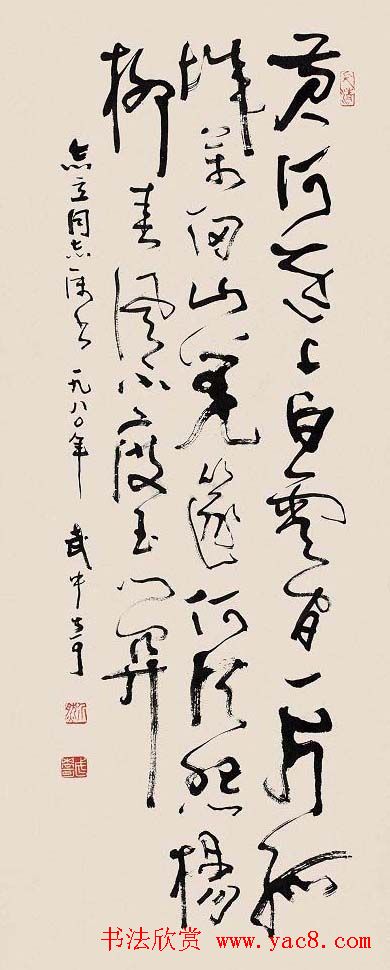 黄河遠上白雲間一片孤
城萬仞山羌篴何須怨楊
柳春風不度玉門關
立同志属书 一九八〇年 武中奇
书法欣赏 www.yac8.com